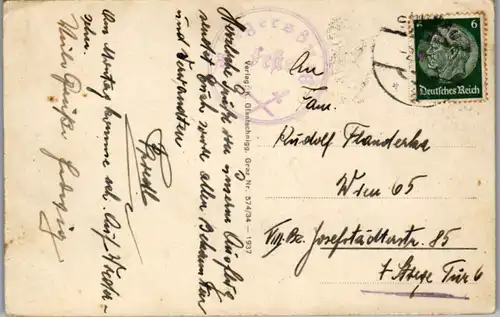 Herzliche Grüße von unserm Ausfluge
sendet Euch sowie allen Bekannten
und Verwandten
Friedl
Am Montag komme ich. Auf Wieder-
sehn.
Viele Grüße Hedwig
Verlag: K. Ofantschnigg, Graz Nr. 574/34 — 1937
6
Deutsches Reich
An
Fam.
Rudolf Flanderka
Wien 65
VIII. Bz. Josefstädterstr. 85
Stiege Tür 6